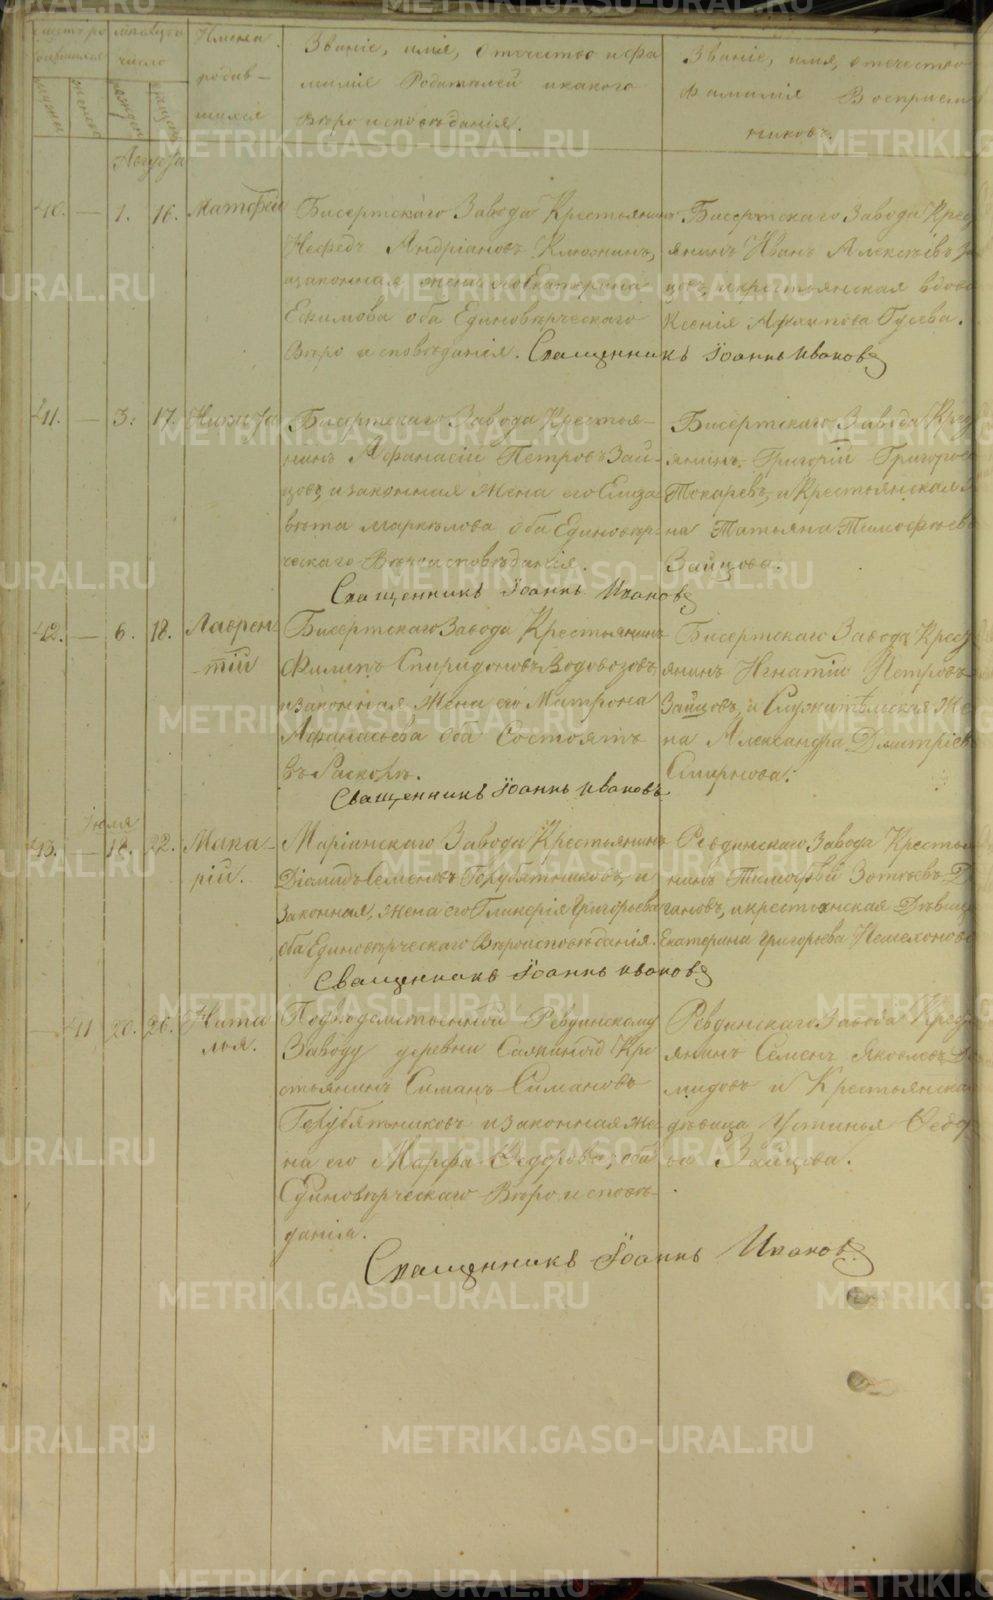 Счетъ ро
дившихся
Мѣсяцъ и
число
Имена
родив-
шихся
Званіе, имя, отчество и фа
милія Родителей и какого
вѣроисповѣданія.
Званіе, имя, отчество
фамилія Воспріем
никовъ.
Августа
40. — 1. 16. Матфей
Бисертскаго Завода Крестьянинъ
Нефедъ Андріановъ Клюжинъ,
и законная жена его Екатерина
Екимова оба Единовѣрческаго
Вѣроисповѣданія. Священникъ Іоаннъ Ивановъ
Бисертскаго Завода Крест
янинъ Иванъ Алексѣевъ
цовъ, и крестьянская вдова
Ксенія Архипова Гусева.
41. — 3. 17. Никита
Бисертскаго Завода Крестья-
нинъ Афанасій Петровъ Зай-
цовъ и законная жена его Елиза
вѣта Маркелова оба Единовѣр-
ческаго Вѣроисповѣданія.
Священникъ Іоаннъ Ивановъ
Бисертскаго Завода Крест
янинъ Григорій Григорьев
Токаревъ, и Крестьянская же
на Татьяна Тимофѣева
Зайцова.
42. — 6. 18. Лаврен
тій
Бисертскаго Завода Крестьянинъ
Филипъ Спиридоновъ Водовозовъ,
и законная жена его Матрона
Афанасьева оба Состоятъ
въ Расколѣ.
Священникъ Іоаннъ Ивановъ
Бисертскаго Завода Крест
янинъ Игнатій Петровъ
Зайцовъ, и Служительская Же
на Александра Дмитріева
Смирнова.
Іюля
43. — 18. 22. Мака-
рій.
Маріинскаго Завода Крестьянинъ
Діомидъ Семеновъ Голубятниковъ, и
Законная жена его Гликерія Григорьева
оба Единовѣрческаго Вѣроисповѣданія.
Священникъ Іоаннъ Ивановъ
Ревдинскаго Завода Крестья
нинъ Тимофѣй Зотѣевъ
гановъ, и крестьянская Дѣвица
Екатерина Григорьева
— 41 20. 26. Ната
лья.
Подвѣдомственной Ревдинскому
Заводу деревни Кре
стьянинъ Симанъ Симановъ
Голубятниковъ и законная же
на его Марфа Федорова, оба
Единовѣрческаго Вѣроисповѣ-
данія.
Священникъ Іоаннъ Ивановъ
Ревдинскаго Завода Крест
янинъ Семенъ Яковлевъ Де
мидовъ и Крестьянская
дѣвица Устинья Федор
ва Зайцова.
METRIKI.GASO-URAL.RU